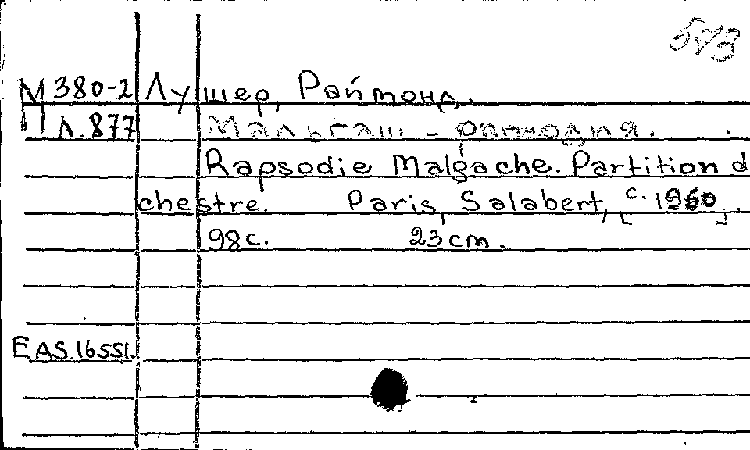 593
М 380-2 Лушер, Раймонд.
Л.877 Мальгаш - рапсодия.
Rapsodie Malgache. Partition d
chestre. Paris, Salabert, c. 1960.
98с. 23cm.
EAS.16551.